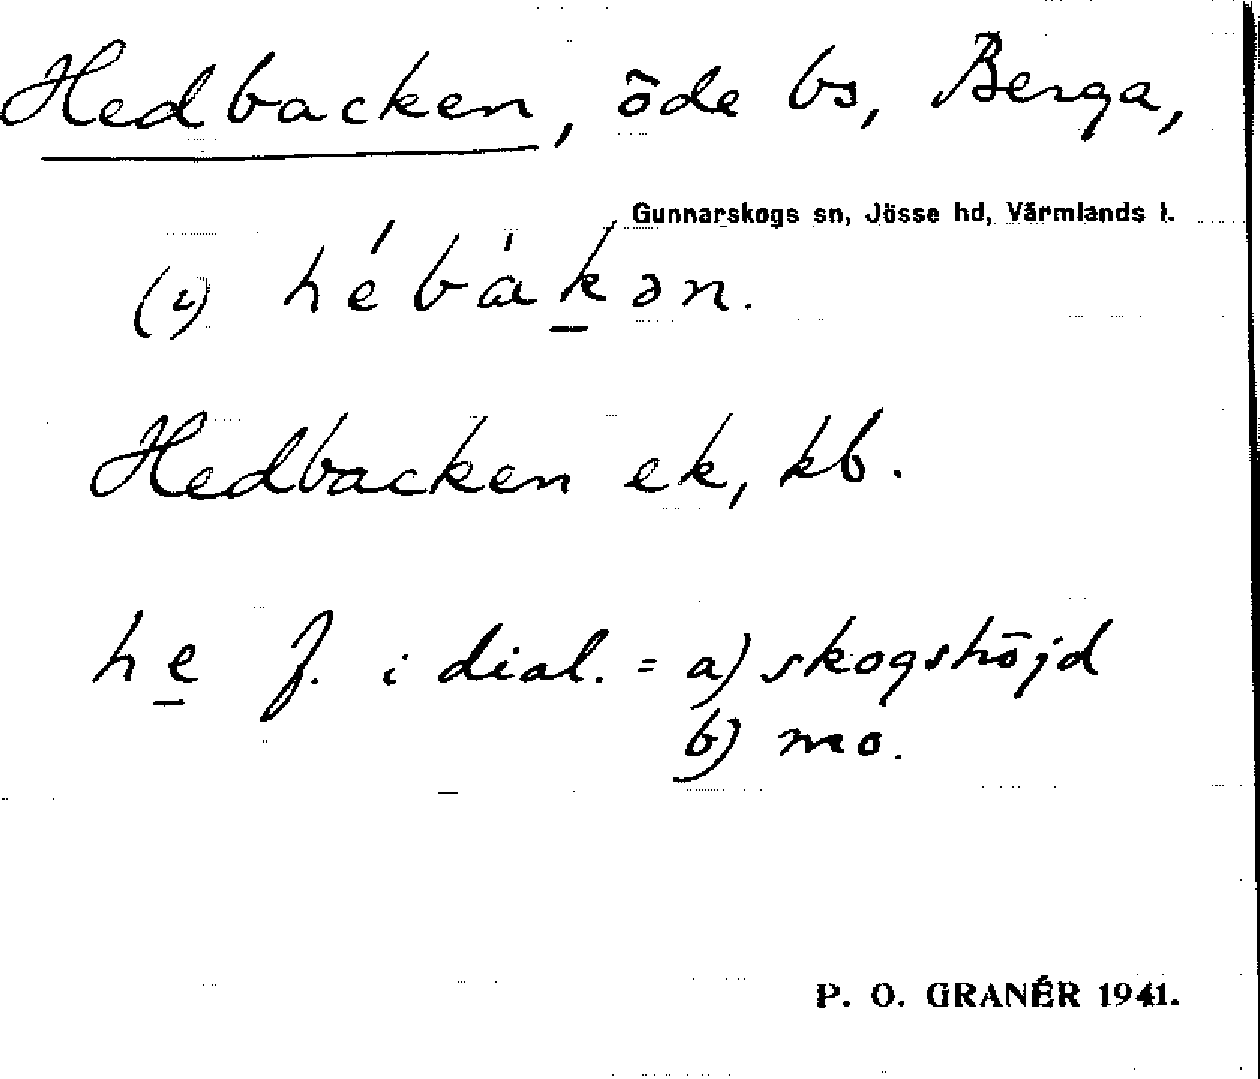 Hedbacken, öde bs, Berga,
Gunnarskogs sn, Jösse hd, Värmlands l.
(i) hébákən.
Hedbacken ek, kb.
he f. i dial. = a) skogshöjd
b) mo.
P. O. GRANÉR 1941.